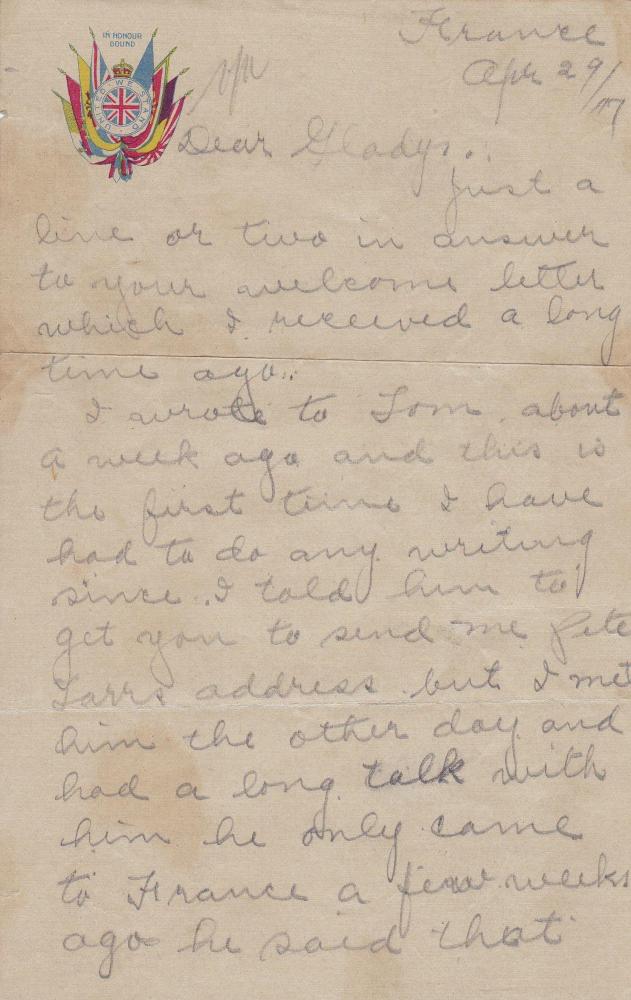 IN HONOUR
BOUND
UNITED WE STAND
France
Apr 29/17
Dear Gladys.
Just a
line or two in answer
to your welcome letter
which I received a long
time ago.
I wrote to Tom about
a week ago and this is
the first time I have
had to do any writing
since. I told him to
get you to send me Pete
Tarrs address but I met
him the other day and
had a long talk with
him he only came
to France a few weeks
ago he said that